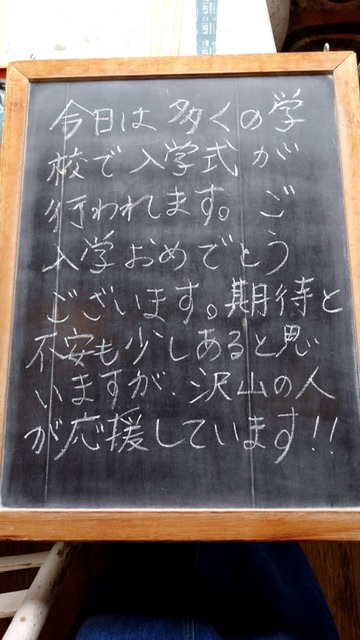 今日は多くの学
校で入学式が
行われます。ご
入学おめでとう
ございます。期待と
不安も少しあると思
いますが、沢山の人
が応援しています!!